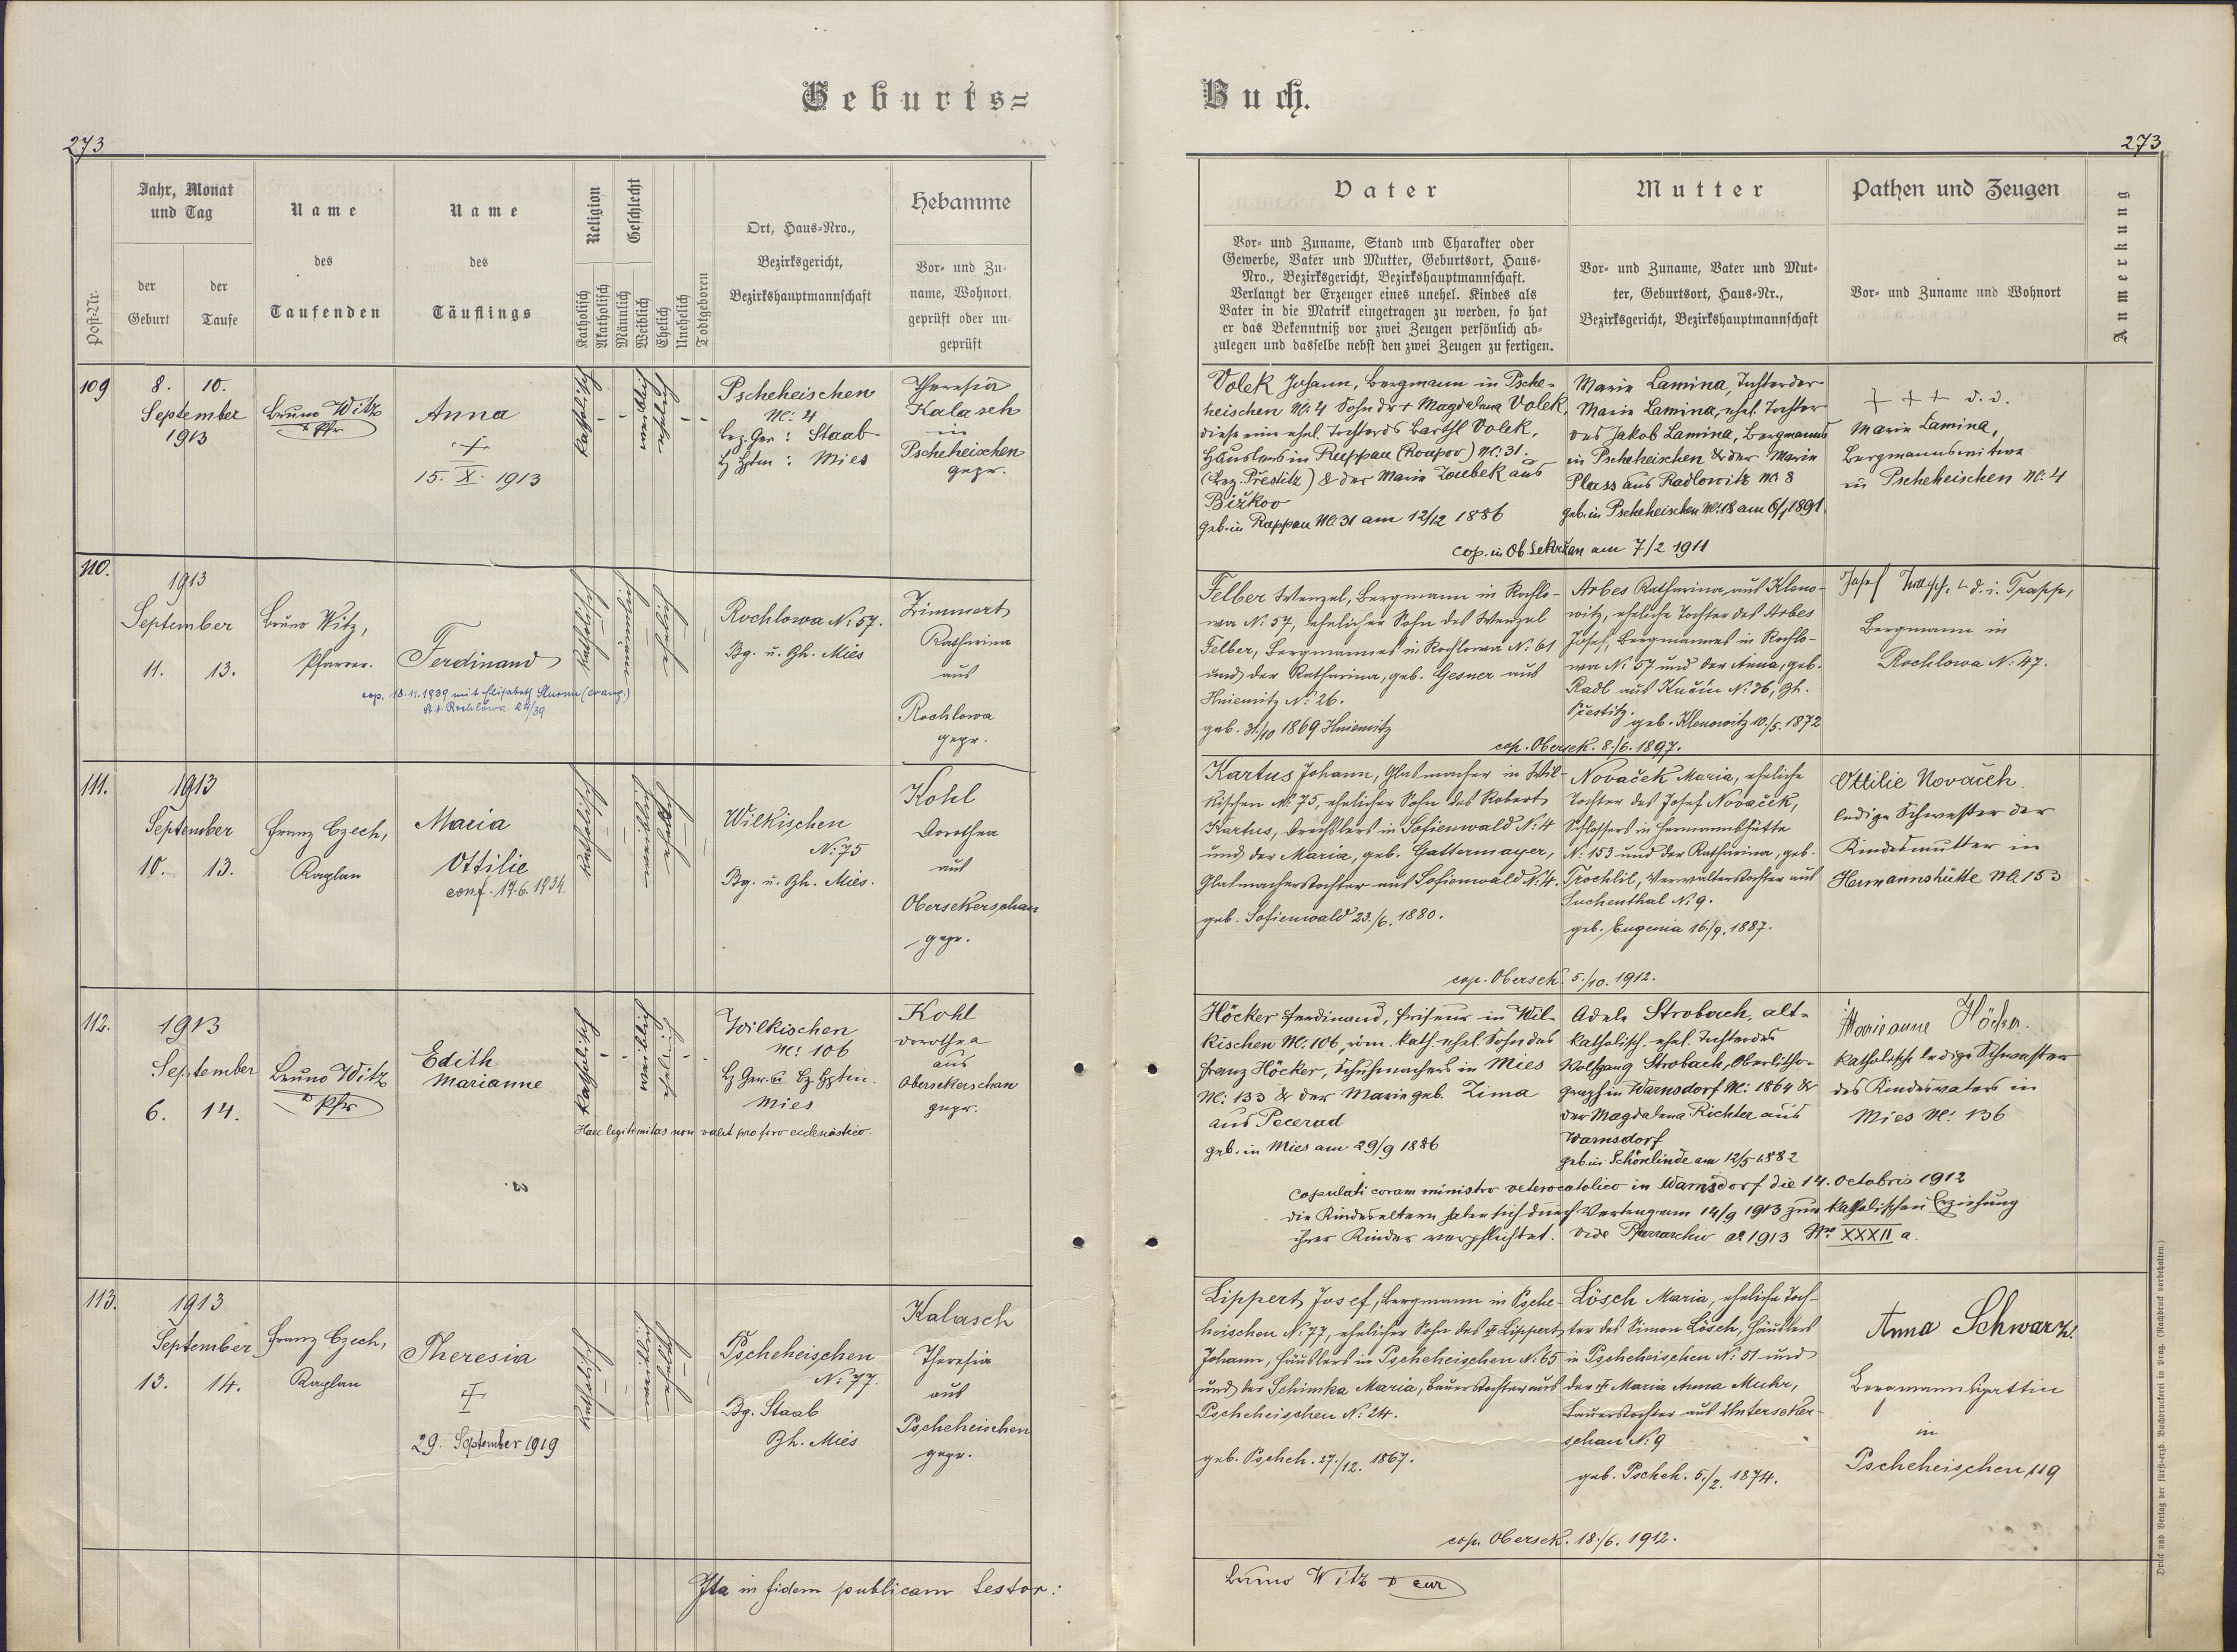 Geburts=
Buch.
273
273
Post-Nr.
Jahr, Monat
und Tag
der
Geburt
der
Taufe
Name
des
Taufenden
Name
des
Täuflings
Religion
Katholisch
Akatholisch
Geschlecht
Männlich
Weiblich
Ehelich
Unehelich
Todtgeboren
Ort, Haus-Nro.,
Bezirksgericht,
Bezirkshauptmannschaft
Hebamme
Vor- und Zu-
name, Wohnort,
geprüft oder un-
geprüft
Vater
Vor- und Zuname, Stand und Charakter oder
Gewerbe, Vater und Mutter, Geburtsort, Haus-
Nro., Bezirksgericht, Bezirkshauptmannschaft.
Verlangt der Erzeuger eines unehel. Kindes als
Vater in die Matrik eingetragen zu werden, so hat
er das Bekenntniß vor zwei Zeugen persönlich ab-
zulegen und dasselbe nebst den zwei Zeugen zu fertigen.
Mutter
Vor- und Zuname, Vater und Mut-
ter, Geburtsort, Haus-Nr.,
Bezirksgericht, Bezirkshauptmannschaft
Pathen und Zeugen
Vor- und Zuname und Wohnort
Anmerkung
109
8. 10.
September
1913
Bruno Witz
Pfr
Anna
+
15. X. 1913
katholisch
weiblich
ehelich
Pscheheischen
No: 4
Bez. Ger: Staab
Bz Hptm: Mies
Theresia
Kalasch
in
Pscheheischen
gepr.
Volek Johann, Bergmann in Psche-
heischen No: 4 Sohn der + Magdalena Volek,
diese eine ehel. Tochter ds Barthl Volek,
Häuslers in Ruppau (Roupov) No: 31.
(Bez. Přestitz) & der Marie Zoubek aus
Bižkov
geb. in Ruppau No. 31 am 12/12 1886
Marie Lamina, Tochter der
Marie Lamina, ehel. Tochter
des Jakob Lamina, Bergmanns
in Pscheheischen & der Marie
Plass aus Radlowitz No 8
geb. in Pscheheischen No: 18 am 6/1 1891
cop. in Ob. Sekržan am 7/2 1911
+ + + d. i.
Marie Lamina,
Bergmannswitwe
in Pscheheischen No: 4
110.
1913
September
11. 13.
Bruno Witz,
Pfarrer.
Ferdinand
cop. 18.11.1939 mit Elisabeth Sturm (evang.)
St. A. Rochlowa 24/39
katholisch
männlich
ehelich
Rochlowa N: 57.
Bg. u. Bh. Mies
Zimmert
Katharina
aus
Rochlowa
gepr.
Felber Wenzel, Bergmann in Rochlo-
wa N: 57, ehelicher Sohn des Wenzel
Felber, Bergmannes in Rochlowa N: 61
und der Katharina, geb. Gesner aus
Hniemitz N: 26.
geb. 31/10 1869 Hniemitz
Arbes Katharina aus Kleno-
witz, eheliche Tochter des Arbes
Josef, Bergmannes in Rochlo-
wa N: 57 und der Anna, geb.
Radl aus Kučin N: 36, Bh.
Přestitz.
geb. Klenowitz 10./5. 1872
cop. Obersek. 8./6. 1897.
Josef d. i. Trapp,
Bergmann in
Rochlowa N: 47.
111.
1913
September
10. 13.
Franz Czech,
Kaplan
Maria
Ottilie
conf. 17.6.1934.
katholisch
weiblich
ehelich
Wilkischen
N: 75
Bg. u. Bh. Mies.
Kohl
Dorothea
aus
Obersekerschan
gepr.
Kartus Johann, Glasmacher in Wil-
kischen N: 75, ehelicher Sohn des Robert
Kartus, Drechslers in Sofienwald N: 4
und der Maria, geb. Gattermayer,
Glasmacherstochter aus Sofienwald N: 4.
geb. Sofienwald 23./6. 1880.
Nováček Maria, eheliche
Tochter des Josef Nováček,
Schlossers in Hermannshütte
N: 153 und der Katharina, geb.
Trochlil, Verwalterstochter aus
Suchenthal N: 9.
geb. Eugenia 16./9. 1887.
cop. Obersek. 5./10. 1912.
Ottilie Nováček
ledige Schwester der
Kindesmutter in
Hermannshütte No 153
112.
1913
September
6. 14.
Bruno Witz
Pfr
Edith
Marianne
katholisch
weiblich
ehelich
Wilkischen
No: 106
Bz Ger. u Bz Hptm.
Mies
Haec legitimitas non valet pro foro ecclesiastico.
Kohl
Dorothea
aus
Obersekerschan
gepr.
Höcker Ferdinand, Friseur in Wil-
kischen No: 106, röm. kath. ehel. Sohn des
Franz Höcker, Schuhmachers in Mies
No: 133 & der Marie geb. Zima
aus Pecerad
geb. in Mies am 29/9 1886
Adele Strobach, alt-
katholisch, ehel. Tochter des
Wolfgang Strobach, Oberlitho-
graph in Warnsdorf No: 1864 &
der Magdalena Richter aus
Warnsdorf
geb. in Schönlinde am 12/5 1882
copulati coram ministro veterocatolico in Warnsdorf die 14. Octobris 1912
die Kindeseltern haben sich durch Vertrag vom 14/9 1913 zur katholischen Erziehung
ihrer Kinder verpflichtet. Vide Pfarrarchiv ao 1913 Nro XXXII a.
Marianne Höcker.
katholische ledige Schwester
des Kindesvaters in
Mies No: 136
113.
1913
September
13. 14.
Franz Czech,
Kaplan
Theresia
+
29. September 1919
katholisch
weiblich
ehelich
Pscheheischen
N: 77.
Bg. Staab
Bh. Mies
Kalasch
Theresia
aus
Pscheheischen
gepr.
Lippert Josef, Bergmann in Psche-
heischen N: 77, ehelicher Sohn des + Lippert
Johann, Häuslers in Pscheheischen N: 65
und der Schimka Maria, Bauerstochter aus
Pscheheischen N: 24.
geb. Pscheh. 27./12. 1867.
Lösch Maria, eheliche Toch-
ter des Simon Lösch, Häuslers
in Pscheheischen N: 51 und
der + Maria Anna Muhr,
Bauerstochter aus Unterseker-
schan N: 9
geb. Pscheh. 5./2. 1874.
cop. Obersek. 18./6. 1912.
Anna Schwarz
Bergmannsgattin
in
Pscheheischen 119
Ita in fidem publicam testor:
Bruno Witz cur
Druck und Verlag der fürst-erzb. Buchdruckerei in Prag. (Nachdruck vorbehalten.)